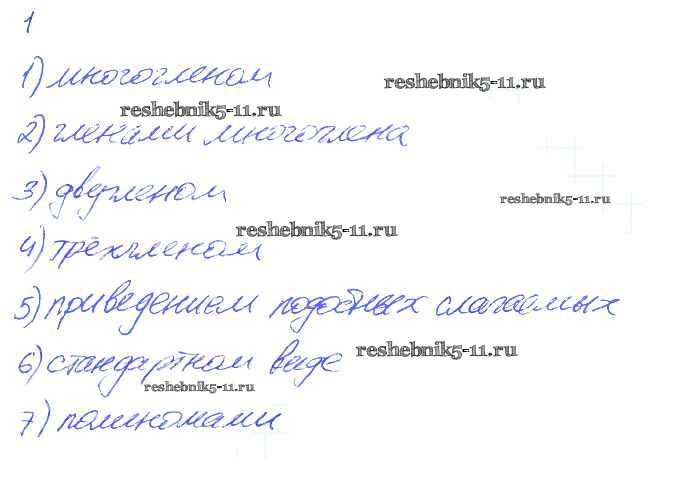 1
1) многочленом
reshebnik5-11.ru
reshebnik5-11.ru
2) членами многочлена
3) двучленом
reshebnik5-11.ru
reshebnik5-11.ru
4) трёхчленом
5) приведением подобных слагаемых
6) стандартном виде
reshebnik5-11.ru
reshebnik5-11.ru
7) полиномами